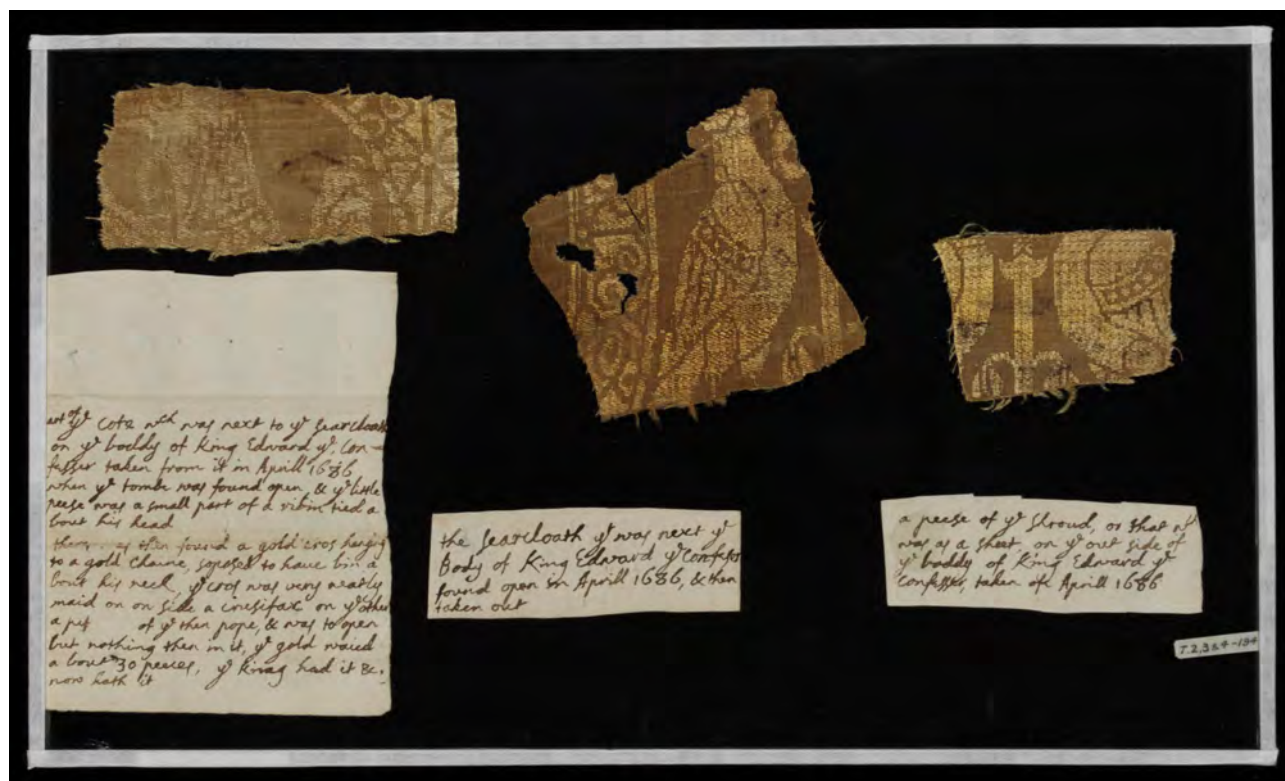 of yᵉ Cote wᶜʰ was next to yᵉ searcloath
on yᵉ boddy of King Edward yᵉ, Con–
fesser taken from it in Aprill 1686
when yᵉ tombe was found open, & yᵉ little
peese was a small part of a ribin tied a
bout his head
then found a gold cros hanging
to a gold Chaine, soposed to haue bin a
bout his neck, yᵉ cros was very neatly
maid on on side a crusifax on yᵉ other
a of yᵉ then pope, & was to open
but nothing then in it, yᵉ gold waied
a bout 30 peeces, yᵉ King had it &c.
now hath it
the Searcloath yᵗ was next yᵉ
Body of King Edward yᵉ Confesser
found open in Aprill 1686, & then
taken out
a peese of yᵉ Shroud, or that
was as a sheet, on yᵉ out side of
yᵉ boddy of King Edward yᵉ
Confesser, taken of Aprill 1686
T.2,3&4-194